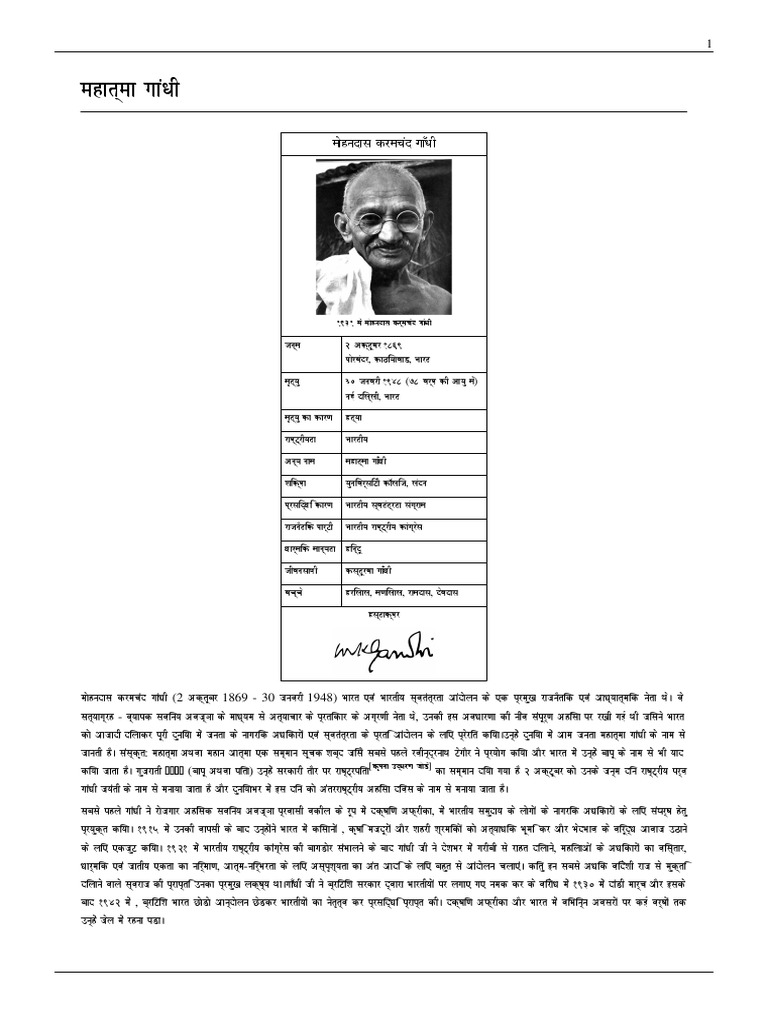 1
महात्मा गांधी
मोहनदास करमचंद गाँधी
१९३१ में मोहनदास करमचंद गांधी
जन्म २ अक्टूबर १८६९
पोरबंदर, काठियावाड़, भारत
मृत्यु ३० जनवरी १९४८ (७८ वर्ष की आयु में)
नई दिल्ली, भारत
मृत्यु का कारण हत्या
राष्ट्रीयता भारतीय
अन्य नाम महात्मा गाँधी
शिक्षा युनिवर्सिटी कॉलिज, लंदन
प्रसिद्धि कारण भारतीय स्वतंत्रता संग्राम
राजनैतिक पार्टी भारतीय राष्ट्रीय कांग्रेस
धार्मिक मान्यता हिन्दू
जीवनसाथी कस्तूरबा गाँधी
बच्चे हरिलाल, मणिलाल, रामदास, देवदास
हस्ताक्षर
mkgandhi
मोहनदास करमचंद गांधी (2 अक्तूबर 1869 - 30 जनवरी 1948) भारत एवं भारतीय स्वतंत्रता आंदोलन के एक प्रमुख राजनैतिक एवं आध्यात्मिक नेता थे। वे
सत्याग्रह - व्यापक सविनय अवज्ञा के माध्यम से अत्याचार के प्रतिकार के अग्रणी नेता थे, उनकी इस अवधारणा की नींव संपूर्ण अहिंसा पर रखी गई थी जिसने भारत
को आजादी दिलाकर पूरी दुनिया में जनता के नागरिक अधिकारों एवं स्वतंत्रता के प्रति आंदोलन के लिए प्रेरित किया।उन्हें दुनिया में आम जनता महात्मा गांधी के नाम से
जानती है। संस्कृत: महात्मा अथवा महान आत्मा एक सम्मान सूचक शब्द जिसे सबसे पहले रवीन्द्रनाथ टेगौर ने प्रयोग किया और भारत में उन्हें बापू के नाम से भी याद
किया जाता है। गुजराती (बापू अथवा पिता) उन्हें सरकारी तौर पर राष्ट्रपिता[कृपया उद्धरण जोड़ें] का सम्मान दिया गया है २ अक्टूबर को उनके जन्म दिन राष्ट्रीय पर्व
गांधी जयंती के नाम से मनाया जाता है और दुनियाभर में इस दिन को अंतरराष्ट्रीय अहिंसा दिवस के नाम से मनाया जाता है।
सबसे पहले गांधी ने रोजगार अहिंसक सविनय अवज्ञा प्रवासी वकील के रूप में दक्षिण अफ्रीका, में भारतीय समुदाय के लोगों के नागरिक अधिकारों के लिए संघर्ष हेतु
प्रयुक्त किया। १९१५ में उनकी वापसी के बाद उन्होंने भारत में किसानों , कृषि मजदूरों और शहरी श्रमिकों को अत्याधिक भूमि कर और भेदभाव के विरुद्ध आवाज उठाने
के लिए एकजुट किया। १९२१ में भारतीय राष्ट्रीय कांग्रेस की बागडोर संभालने के बाद गांधी जी ने देशभर में गरीबी से राहत दिलाने, महिलाओं के अधिकारों का विस्तार,
धार्मिक एवं जातीय एकता का निर्माण, आत्म-निर्भरता के लिए अस्पृश्यता का अंत आदि के लिए बहुत से आंदोलन चलाएं। किंतु इन सबसे अधिक विदेशी राज से मुक्ति
दिलाने वाले स्वराज की प्राप्ति उनका प्रमुख लक्ष्य था।गांधी जी ने ब्रिटिश सरकार द्वारा भारतीयों पर लगाए गए नमक कर के विरोध में १९३० में दांडी मार्च और इसके
बाद १९४२ में , ब्रिटिश भारत छोडो आन्दोलन छेडकर भारतीयों का नेतृत्व कर प्रसिद्धि प्राप्त की। दक्षिण अफ्रीका और भारत में विभिन्न अवसरों पर कई वर्षों तक
उन्हें जेल में रहना पडा।